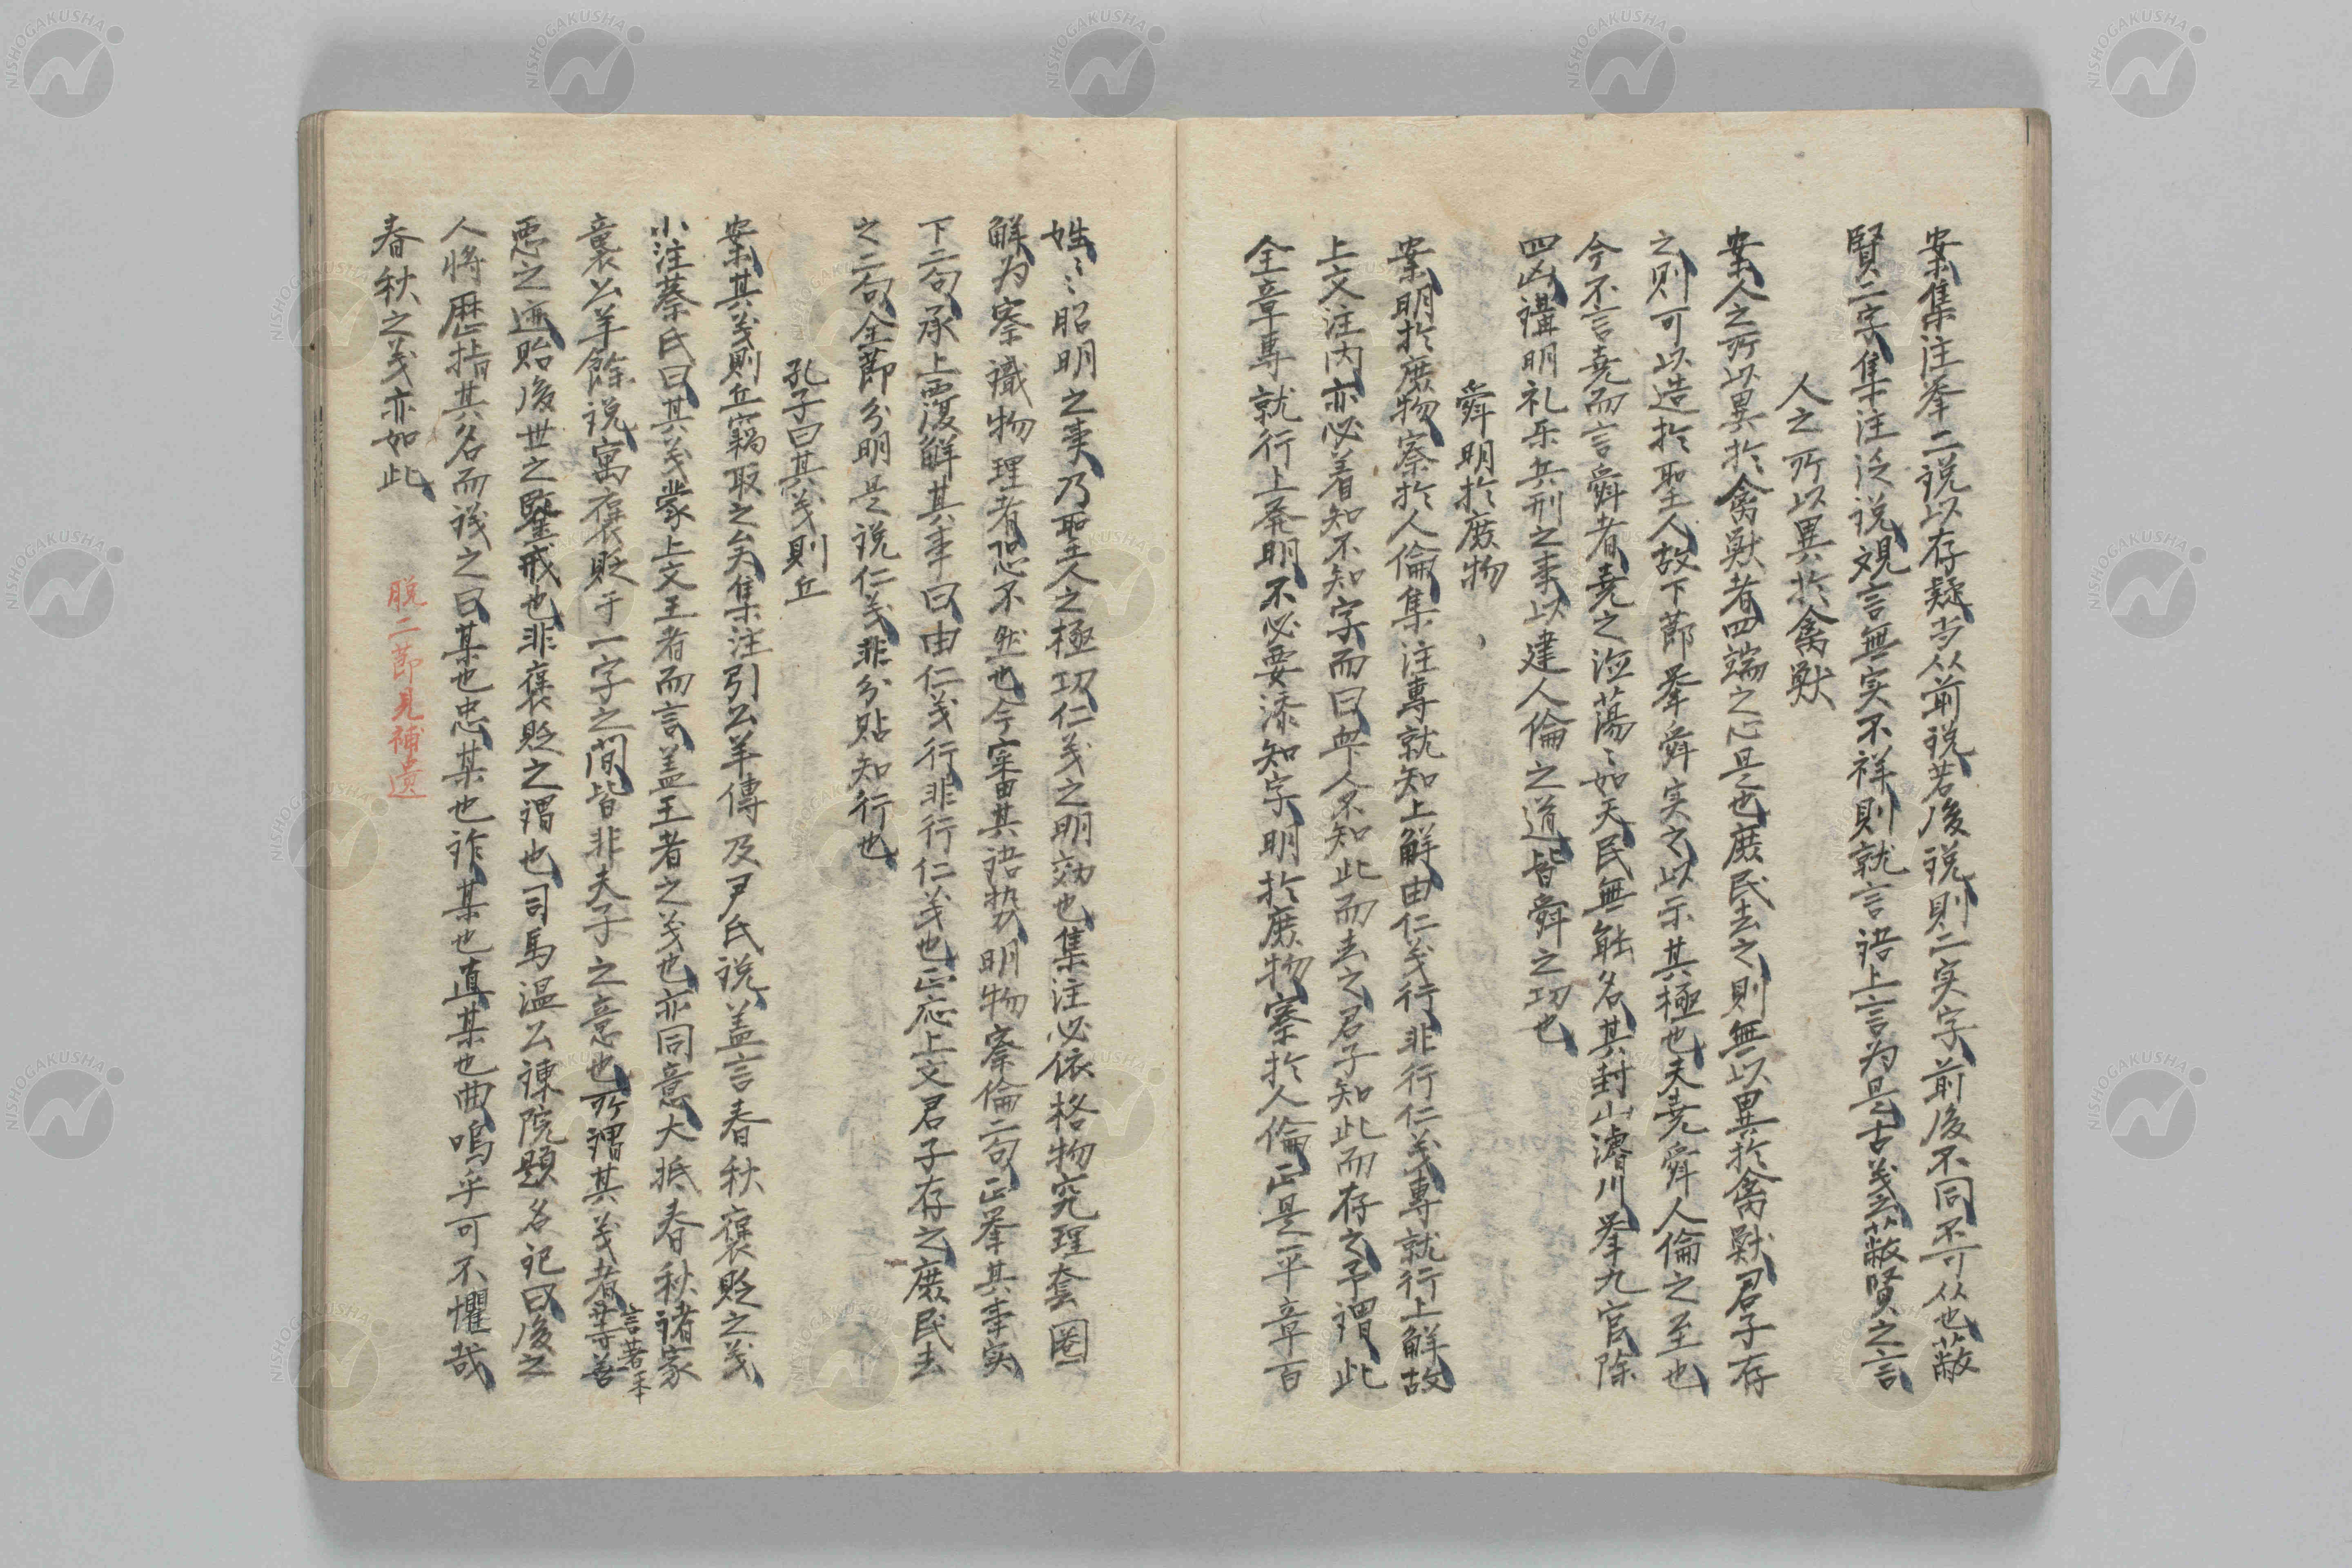 案集注挙二説以存疑当从前説若後説則二実字前後不同不可从也蔽
賢二字集注泛説覌言無实不祥則就言語上言为是古義云蔽賢之言
人之所以異於禽獣
案人之所以異於禽獣者四端之心是也庶民去之則無以異於禽獣君子存
之則可以造於聖人故下節挙舜实之以示其極也夫尭舜人倫之至也
今不言尭而言舜者尭之滋蕩〻如天民無能名其封山濬川挙九官除
四凶講明礼乐兵刑之事以建人倫之道皆舜之功也
舜明於庶物
案明於庶物察於人倫集注専就知上解由仁义行非行仁义専就行上解故
上文注内亦必着知不知字而曰衆人不知此而去之君子知此而存之予謂此
全章専就行上発明不必要添知字明於庶物察於人倫正是平章百
姓〻昭明之事乃聖人之極功仁义之明効也集注必依格物究理套圏
解为察識物理者恐不然也今案其語勢明物察倫二句正挙其事实
下二句承上覆解其事曰由仁义行非行仁义也正応上文君子存之庶民去
之二句全節分明是説仁义非分貼知行也
孔子曰其义則丘
案其义則丘竊取之矣集注引公羊傳及尹氏説盖言春秋褒貶之义
小注蔡氏曰其义蒙上文王者而言盖王者之义也亦同意大抵春秋諸家
襄公羊餘説寓褒貶于一字之間皆非夫子之意也所謂其义者言若其善
悪之迹貽後世之鑒戒也非褒貶之謂也司馬温公諌院題名記曰後之
人将歴指其名而议之曰某也忠某也詐某也直某也曲嗚乎可不懼哉
春秋之义亦如此
脱二節見補遺